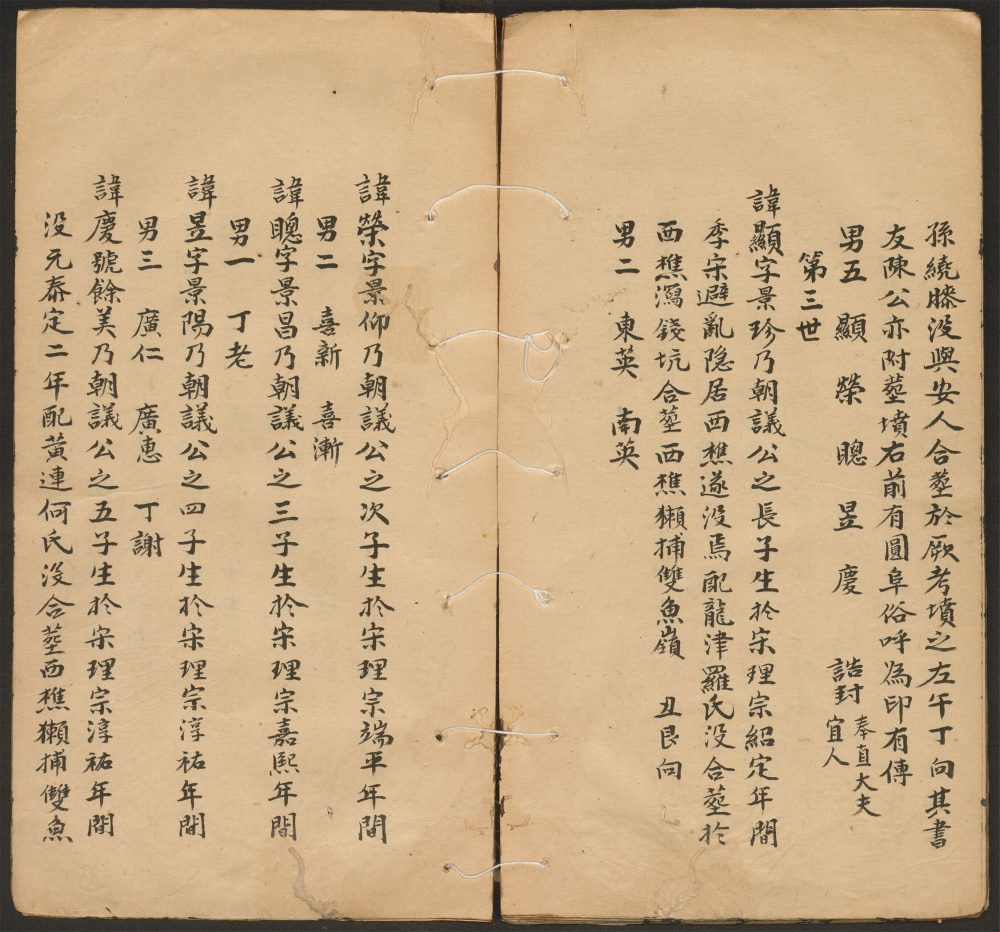 孫繞膝没與安人合塟於厥考墳之左午丁向其書
友陳公亦附塟墳右前有圓阜俗呼為印有傳
男五　顯　榮　聰　昱　慶　誥封奉直大夫宜人
第三世
諱顯字景珍乃朝議公之長子生於宋理宗紹定年間
季宋避亂隐居西樵遂没焉配龍津羅氏没合塟於
西樵瀉錢坑合塟西樵獺捕雙魚嶺　丑艮向
男二　東英　南英
諱榮字景仰乃朝議公之次子生於宋理宗端平年間
男二　喜新　喜漸
諱聰字景昌乃朝議公之三子生於宋理宗嘉熙年間
男一　丁老
諱昱字景陽乃朝議公之四子生於宋理宗淳祐年間
男三　廣仁　廣惠　丁謝
諱慶號餘美乃朝議公之五子生於宋理宗淳祐年間
没元泰定二年配黃連何氏没合塟西樵獺捕雙魚